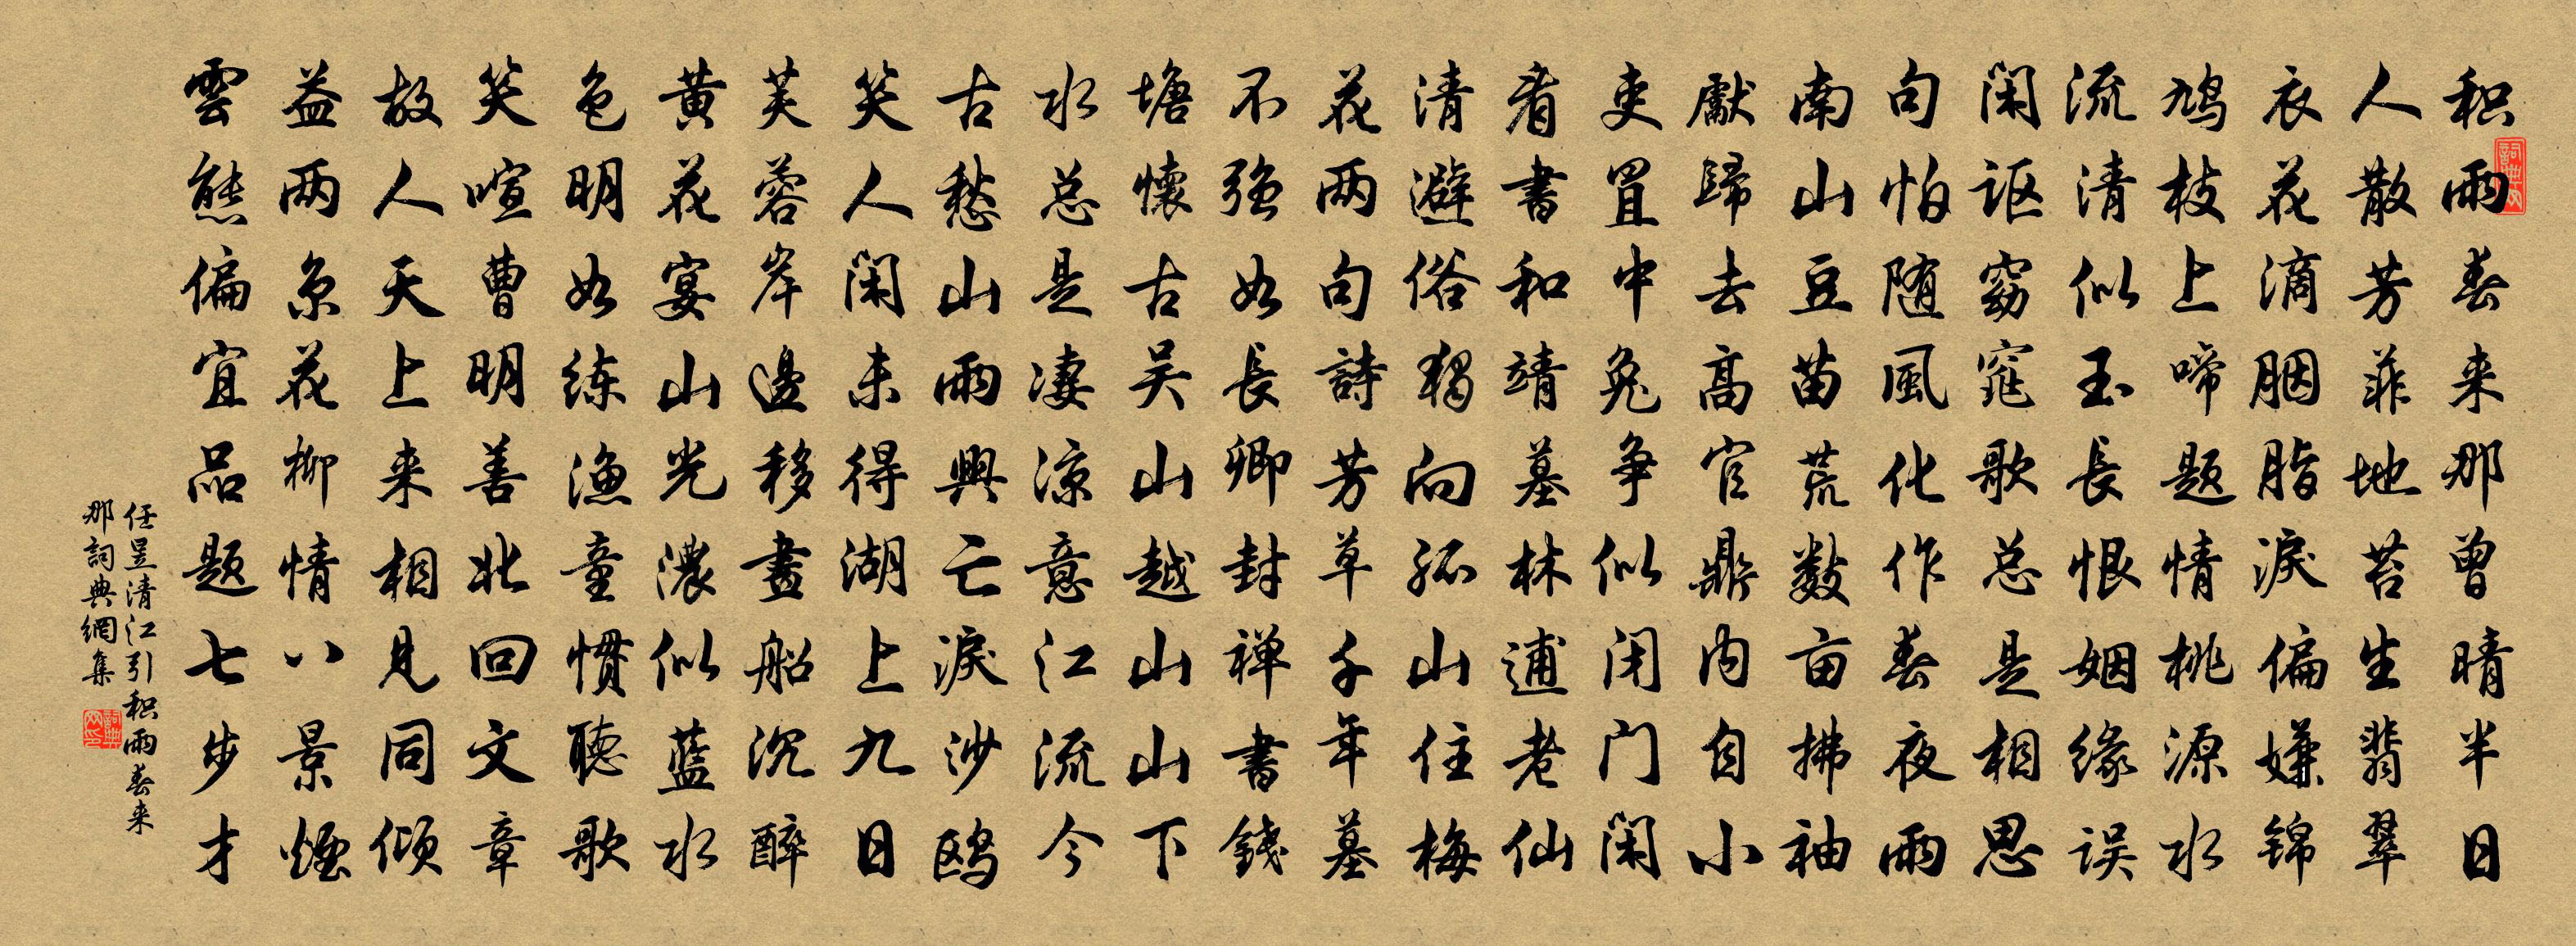 积雨春来那曾晴半日
人散芳菲地苔生翡翠
衣花滴胭脂淚偏嫌锦
鸠枝上啼题情桃源水
流清似玉長恨姻缘误
闲讴窈窕歌总是相思
句怕随風化作春夜雨
南山豆苗荒数亩拂袖
獻歸去高官鼎内自小
吏罝中兔争似闭门闲
看書和靖墓林逋老仙
清避俗独向孤山住梅
花两句詩芳草千年墓
不强如長卿封禅書錢
塘懷古吴山越山山下
水总是凄凉意江流今
古愁山雨興亡淚沙鸥
笑人闲未得湖上九日
芙蓉岸邊移畫船沉醉
黄花宴山光濃似蓝水
色明如练渔童惯聽歌
笑喧曹明善北回文章
故人天上来相見同倾
益两京花柳情八景烟
雲態偏宜品题七步才
任昱清江引积雨春来
那詞典網集